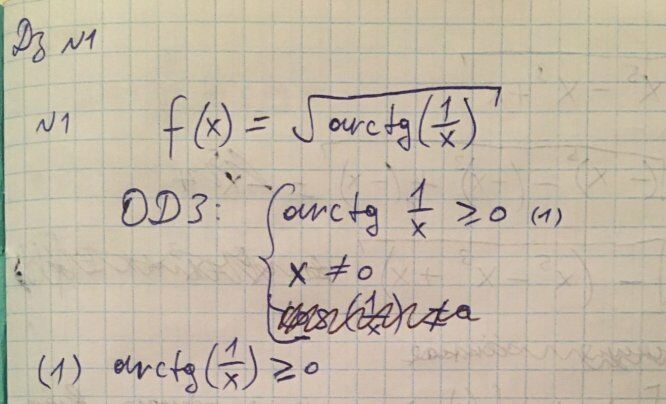 Дз №1
№1 f(x) = √arctg(1/x)
ОДЗ: { arctg 1/x ≥ 0 (1)
x ≠ 0
(1) arctg(1/x) ≥ 0